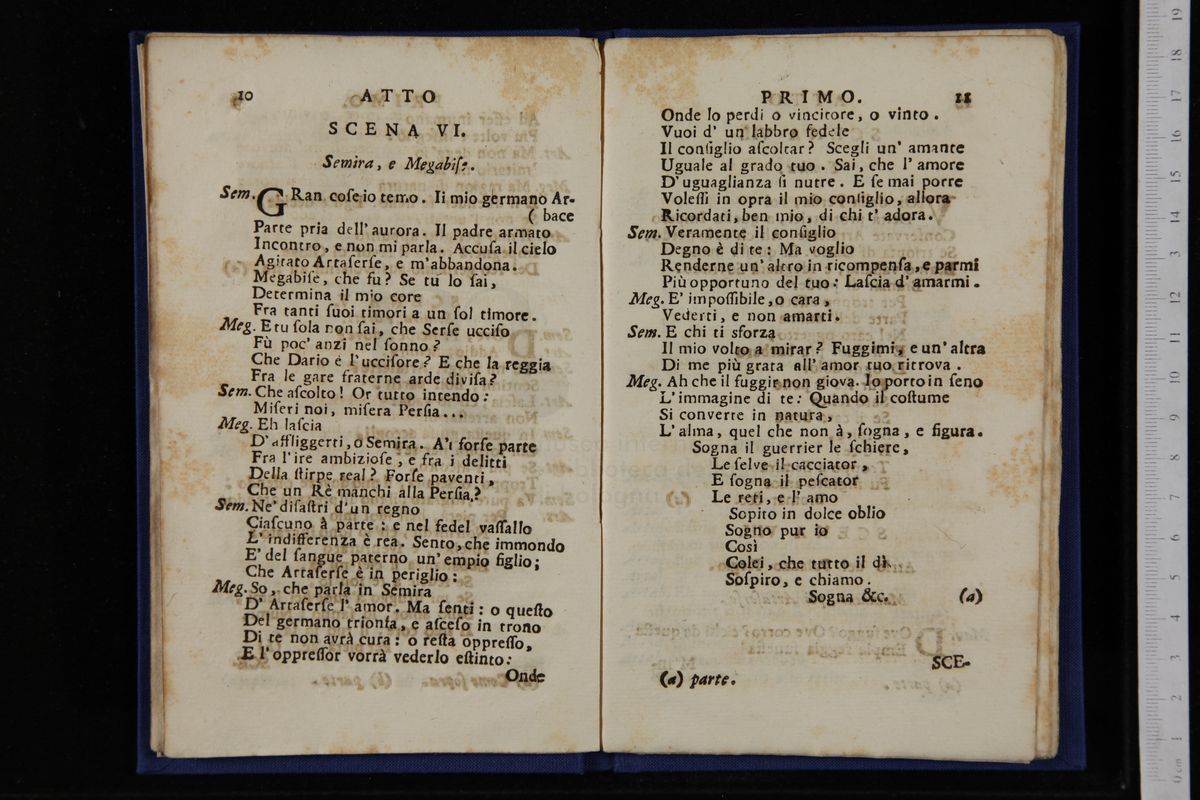 10 ATTO
SCENA VI.
Semira, e Megabiſe.
Sem. GRan coſe io temo. Il mio germano Ar-
( bace
Parte pria dell' aurora. Il padre armato
Incontro, e non mi parla. Accuſa il cielo
Agitato Artaſerſe, e m'abbandona.
Megabiſe, che fu? Se tu lo ſai,
Determina il mio core
Fra tanti ſuoi timori a un ſol timore.
Meg. E tu ſola non ſai, che Serſe ucciſo
Fù poc' anzi nel ſonno?
Che Dario è l'ucciſore? E che la reggia
Fra le gare fraterne arde diviſa?
Sem. Che aſcolto! Or tutto intendo:
Miſeri noi, miſera Perſia...
Meg. Eh laſcia
D'affliggerti, o Semira. A'i forſe parte
Fra l'ire ambizioſe, e fra i delitti
Della ſtirpe real? Forſe paventi,
Che un Rè manchi alla Perſia?
Sem. Ne' diſaſtri d'un regno
Ciaſcuno à parte: e nel fedel vaſſallo
L' indifferenza è rea. Sento, che immondo
E' del ſangue paterno un' empio figlio;
Che Artaſerſe è in periglio:
Meg. So, che parla in Semira
D' Artaſerſe l' amor. Ma ſenti: o queſto
Del germano trionfa, e aſceſo in trono
Di te non avrà cura: o reſta oppreſſo,
E l' oppreſſor vorrà vederlo eſtinto:
Onde
PRIMO. 11
Onde lo perdi o vincitore, o vinto.
Vuoi d' un labbro fedele
Il conſiglio aſcoltar? Scegli un' amante
Uguale al grado tuo. Sai, che l' amore
D' uguaglianza ſi nutre. E ſe mai porre
Voleſſi in opra il mio conſiglio, allora
Ricordati, ben mio, di chi t' adora.
Sem. Veramente il conſiglio
Degno è di te: Ma voglio
Renderne un' altro in ricompenſa, e parmi
Più opportuno del tuo: Laſcia d' amarmi.
Meg. E' impoſſibile, o cara,
Vederti, e non amarti.
Sem. E chi ti sforza
Il mio volto a mirar? Fuggimi, e un' altra
Di me più grata all' amor tuo ritrova.
Meg. Ah che il fuggir non giova. Io porto in ſeno
L' immagine di te: Quando il coſtume
Si converte in natura,
L' alma, quel che non à, ſogna, e figura.
Sogna il guerrier le ſchiere,
Le ſelve il cacciator,
E ſogna il peſcator
Le reti, e l' amo
Sopito in dolce oblio
Sogno pur io
Così
Colei, che tutto il dì
Soſpiro, e chiamo.
Sogna &c. (a)
SCE-
(a) parte.